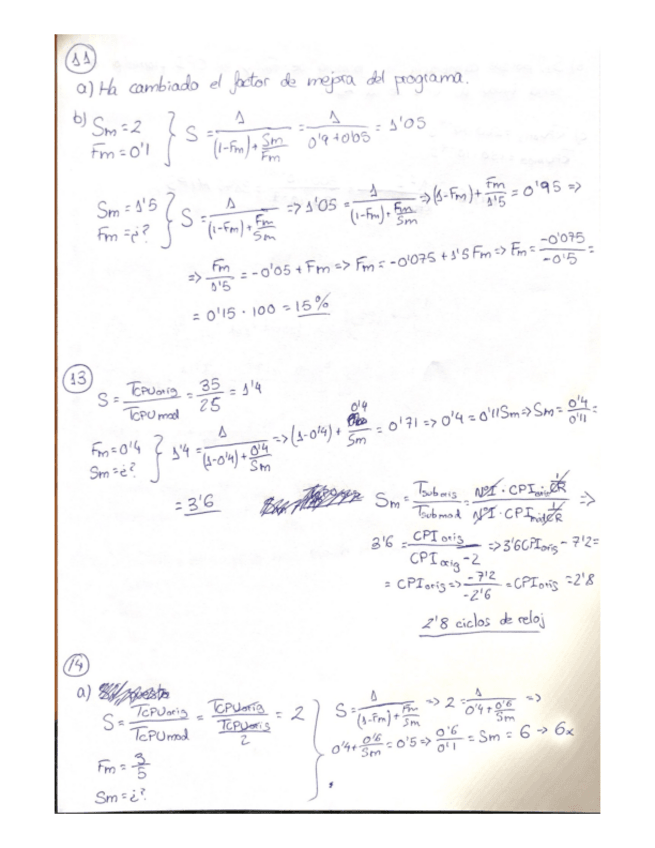 11
a) Ha cambiado el factor de mejora del programa.
b) Sm = 2
Fm = 0'1
} S = 1 / ((1-Fm) + Sm/Fm) = 1 / (0'9 + 0'05) = 1'05
Sm = 1'5
Fm = ¿?
} S = 1 / ((1-Fm) + Fm/Sm) => 1'05 = 1 / ((1-Fm) + Fm/Sm) => (1-Fm) + Fm/1'5 = 0'95 =>
=> Fm/1'5 = -0'05 + Fm => Fm = -0'075 + 1'5 Fm => Fm = -0'075 / -0'5 =
= 0'15 · 100 = 15%
13
S = TCPUorig / TCPUmod = 35/25 = 1'4
Fm = 0'4
Sm = ¿?
} 1'4 = 1 / ((1-0'4) + 0'4/Sm) => (1-0'4) + 0'4/Sm = 0'71 => 0'4 = 0'11Sm => Sm = 0'4/0'11 =
= 3'6
Sm = Tsuborig / Tsubmod = NºI · CPIorig 1/CR / NºI · CPImod 1/CR =>
3'6 = CPIorig / (CPIorig - 2) => 3'6CPIorig - 7'2 =
= CPIorig => -7'2 / -2'6 = CPIorig = 2'8
2'8 ciclos de reloj
14
a)
S = TCPUorig / TCPUmod = TCPUorig / (TCPUorig / 2) = 2
Fm = 3/5
Sm = ¿?
} S = 1 / ((1-Fm) + Fm/Sm) => 2 = 1 / (0'4 + 0'6/Sm) =>
0'4 + 0'6/Sm = 0'5 => 0'6/0'1 = Sm = 6 → 6x